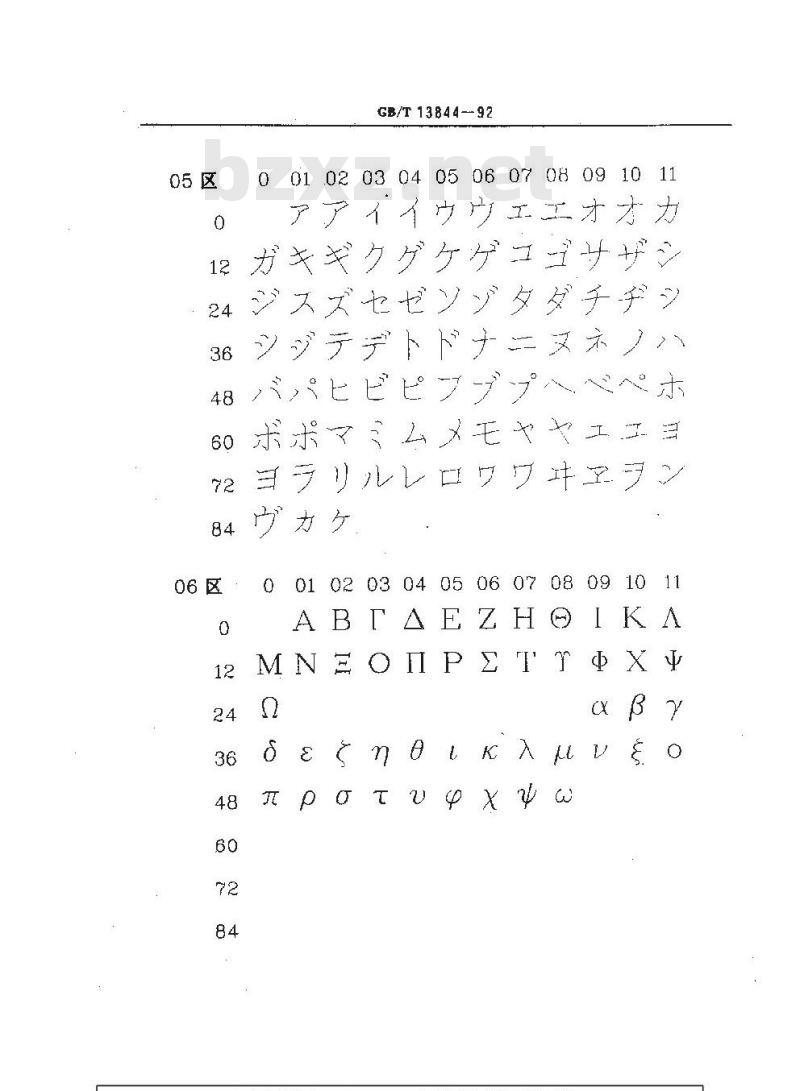 GB/T 13844—92
bzxz.net
05 区 0 01 02 03 04 05 06 07 08 09 10 11
0 ァ ア ィ イ ゥ ウ ェ エ ォ オ カ
12 ガ キ ギ ク グ ケ ゲ コ ゴ サ ザ シ
24 ジ ス ズ セ ゼ ソ ゾ タ ダ チ ヂ ッ
36 ツ ヅ テ デ ト ド ナ ニ ヌ ネ ノ ハ
48 バ パ ヒ ビ ピ フ ブ プ ヘ ベ ペ ホ
60 ボ ポ マ ミ ム メ モ ャ ヤ ュ ユ ョ
72 ヨ ラ リ ル レ ロ ヮ ワ ヰ ヱ ヲ ン
84 ヴ ヵ ヶ
06 区 0 01 02 03 04 05 06 07 08 09 10 11
0 Α Β Γ Δ Ε Ζ Η Θ Ι Κ Λ
12 Μ Ν Ξ Ο Π Ρ Σ Τ Υ Φ Χ Ψ
24 Ω α β γ
36 δ ε ζ η θ ι κ λ μ ν ξ ο
48 π ρ σ τ υ φ χ ψ ω
60
72
84